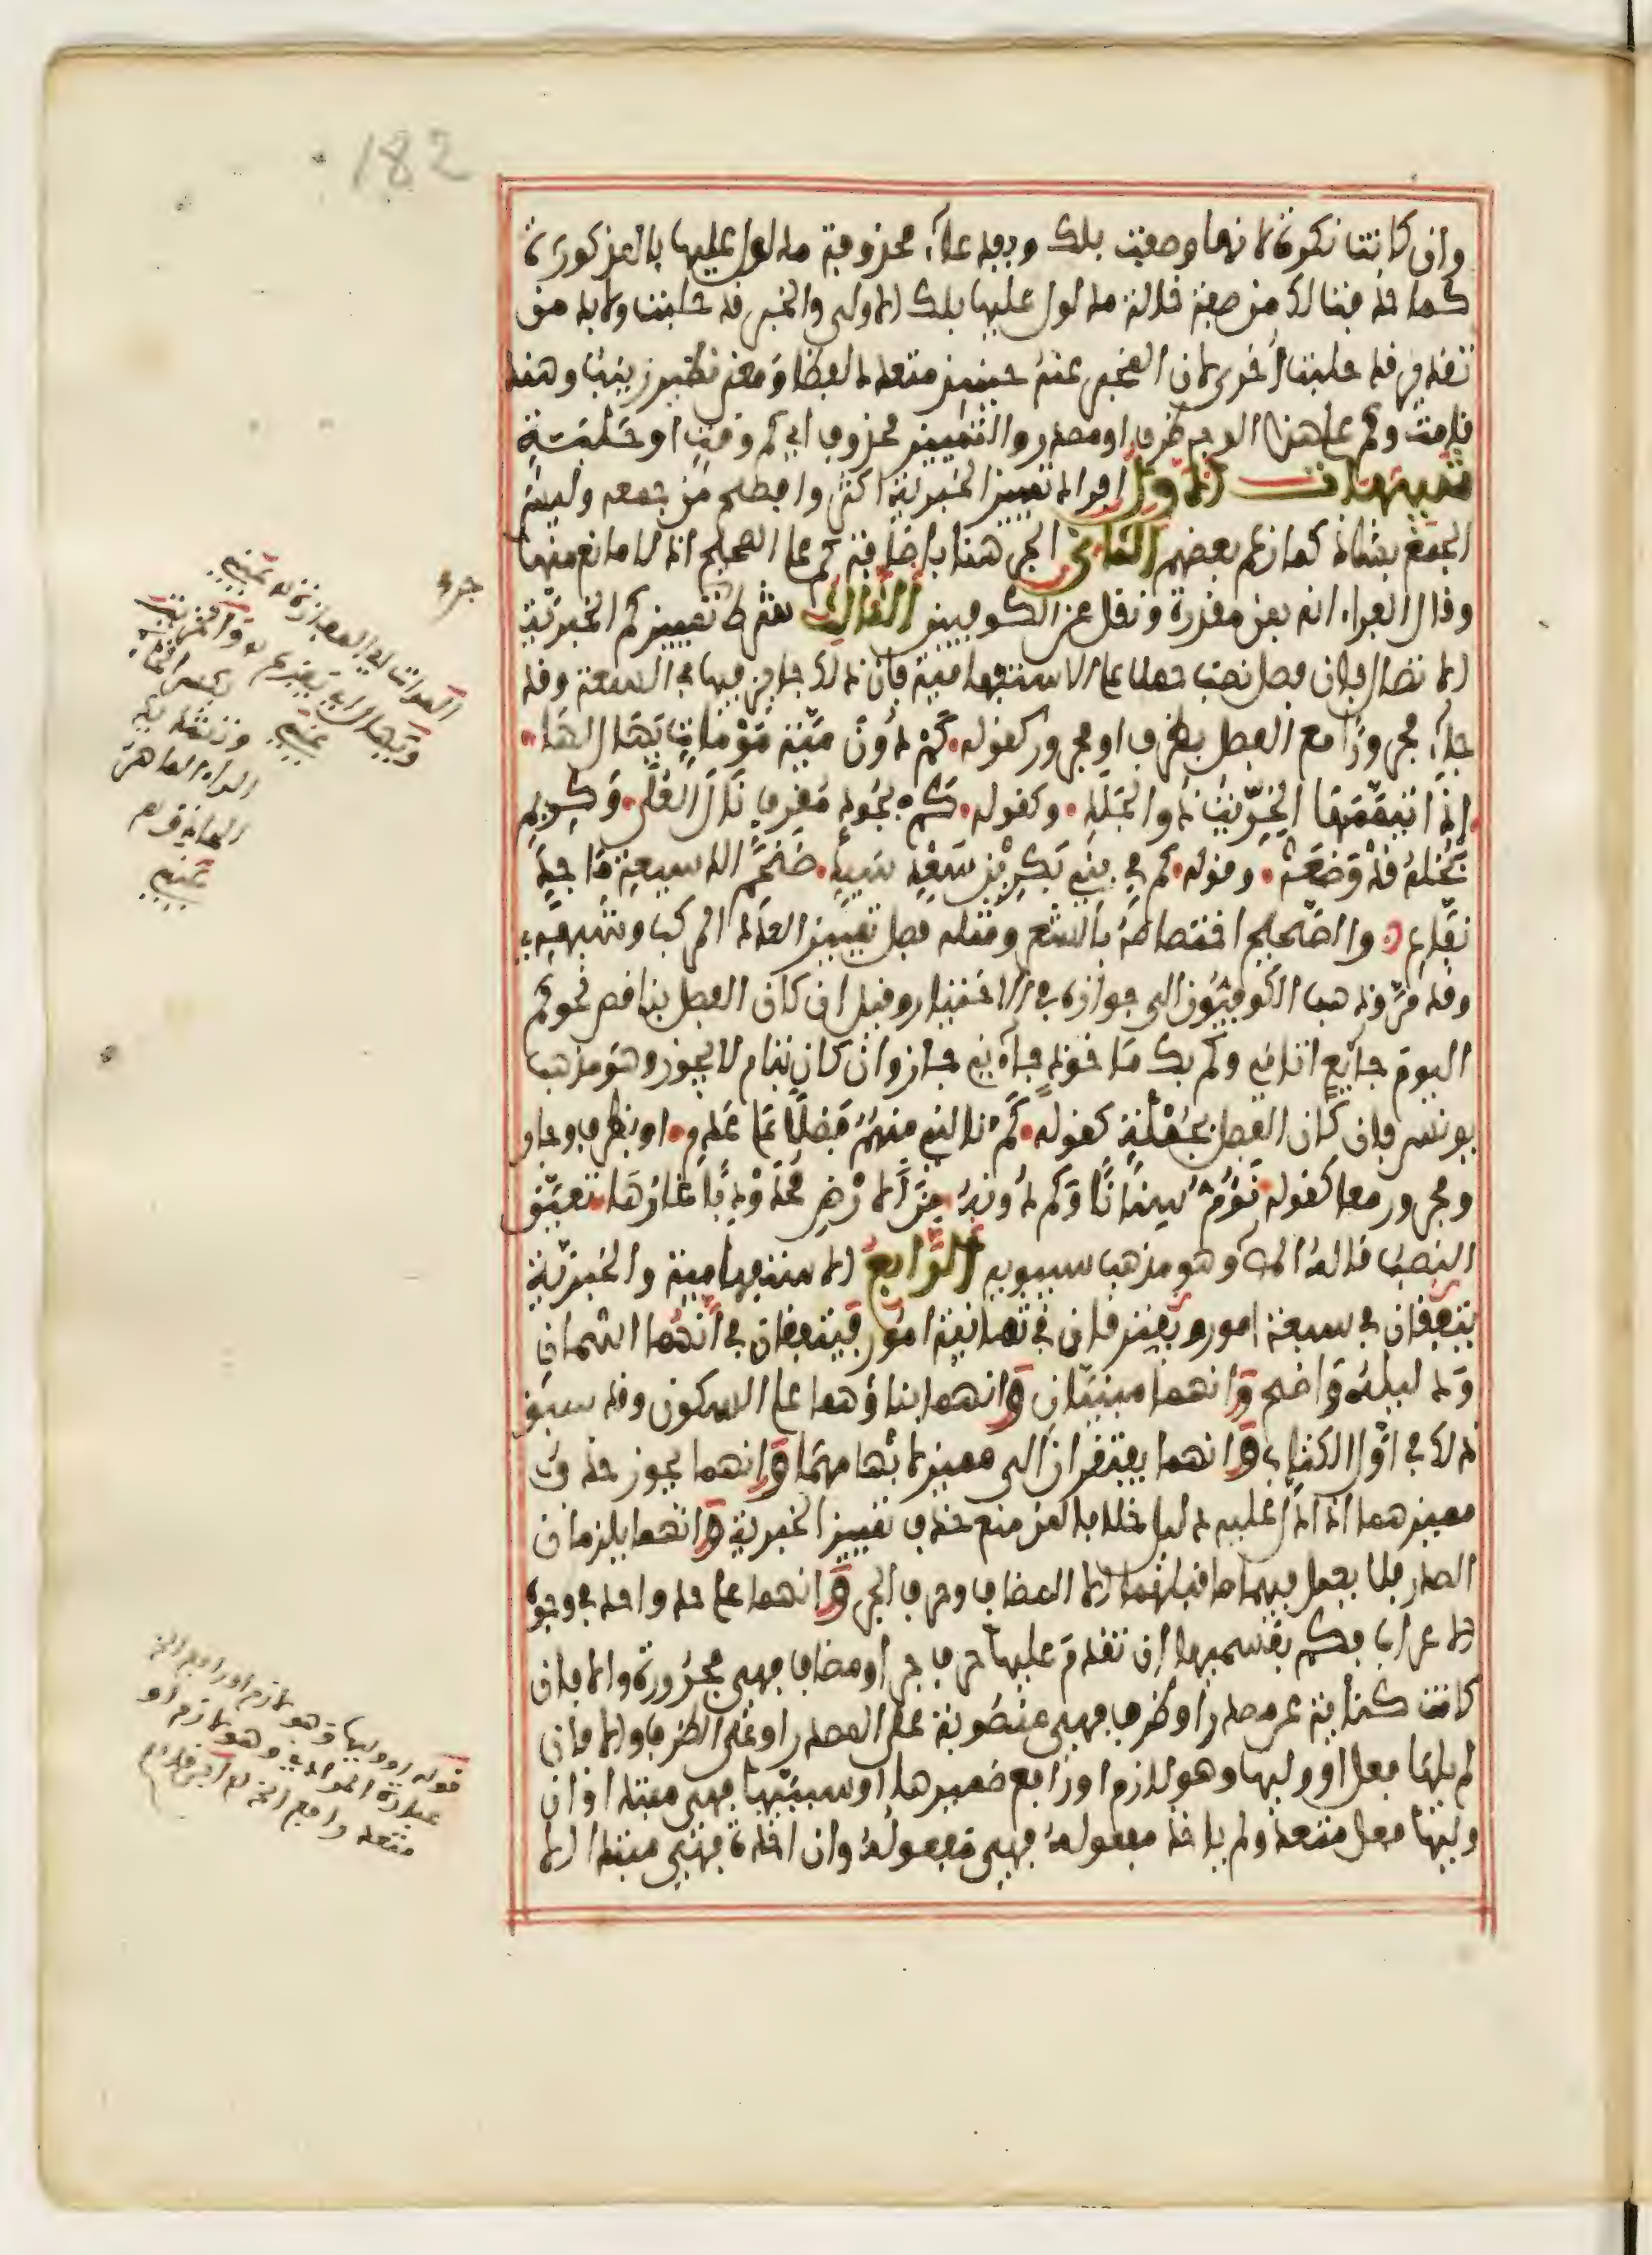 182
وان كانت نكرة لانها وصفت بلك وبفدعاء محذوفة مدلول عليها بالمذكورة
كما حذفت لك من صفة خالة مدلول عليها بلك الاولى والخبر قد حلبت ولا بد من
تقدير قد حلبت اخرى لان المخبر عنه حينئذ متعدد لفظا ومعنى نظير زينب وهند
قامت وكم على هذا الوجه ظرف او مصدر والتمييز محذوف اي كم وقت او حلبة
تنبيهات الاول افراد تمييز الخبرية اكثر وافصح من جمعه وليس
الجمع بشاذ كما زعم بعضهم الثاني الجر هنا باضافة كم على الصحيح اذ لا مانع منها
وقال الفراء انه بمن مقدرة ونقل عن الكوفيين الثالث شرط تمييز كم الخبرية
الاتصال فان فصل نصب حملا على الاستفهامية فان ذلك جائز فيها في السعة وقد
جاء مجرورا مع الفصل بظرف او مجرور كقوله كم دون مية موماة يهال لها
اذا تيممها الخريت ذو الجلد وكقوله كم بجود مقرف نال العلى وكريم
بخله قد وضعه وقوله كم في بني بكر بن سعد سيد ضخم الدسيعة ماجد
نفاع والصحيح اختصاصه بالشعر ومثله فصل تمييز العدد المركب وشبهه
وقد مر وذهب الكوفيون الى جوازه في الاختيار وقيل ان كان الفصل بناقص نحو كم
اليوم جائع اتاني وكم بك ماخوذ جاءني جاز وان كان بتام لا يجوز وهو مذهب
يونس فان كان الفصل بجملة كقوله كم نالني منهم فضلا على عدم او بظرف وجار
ومجرور معا كقوله تؤم سنانا وكم دونه من الارض محدودبا غارها تعين
النصب قاله المص وهو مذهب سيبويه الرابع الاستفهامية والخبرية
يتفقان في سبعة امور ويفترقان في ثمانية امور فيتفقان في انهما اسمان
ودليله واضح وانهما مبنيان وانهما بناؤهما على السكون وقد سبق
ذلك في اول الكتاب وانهما يفتقران الى مميز لابهامهما وانهما يجوز حذف
مميزهما اذا دل عليه دليل خلافا لمن منع حذف تمييز الخبرية وانهما يلزمان
الصدر فلا يعمل فيهما ما قبلهما الا المضاف وحرف الجر وانهما على حد واحد في وجوه
الاعراب فكم بقسميها ان تقدم عليها حرف جر او مضاف فهي مجرورة والا فان
كانت كناية عن مصدر او ظرف فهي منصوبة على المصدر او على الظرف والا فان
لم يلها فعل او وليها وهو لازم او رافع ضميرها او سببيها فهي مبتدا وان
وليها فعل متعد ولم ياخذ مفعوله فهي مفعوله وان اخذه فهي مبتدا الا
جره
قوله او وليها وهو لازم او رافع الخ
عبارة المرادي وهو لازم او
متعد رافع الخ